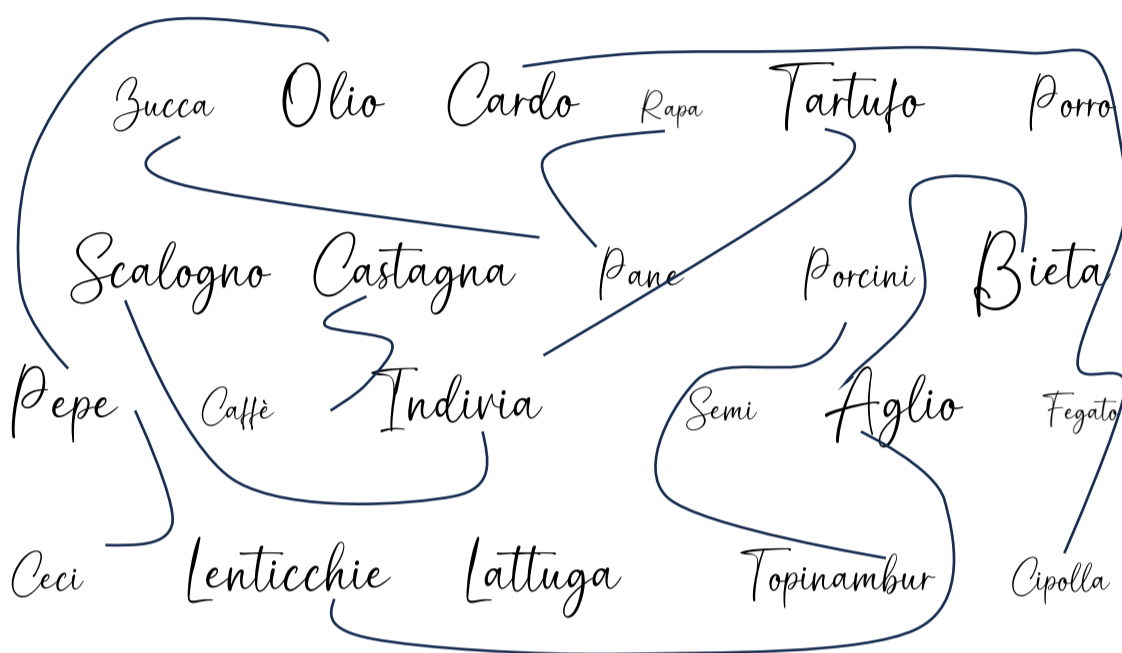 Zucca Olio Cardo Rapa Tartufo Porro
Scalogno Castagna Pane Porcini Bieta
Pepe Caffè Indivia Semi Aglio Fegato
Ceci Lenticchie Lattuga Topinambur Cipolla